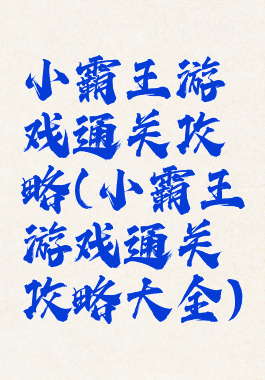 小霸王游
戏通关攻
略(小霸王
游戏通关
攻略大全)